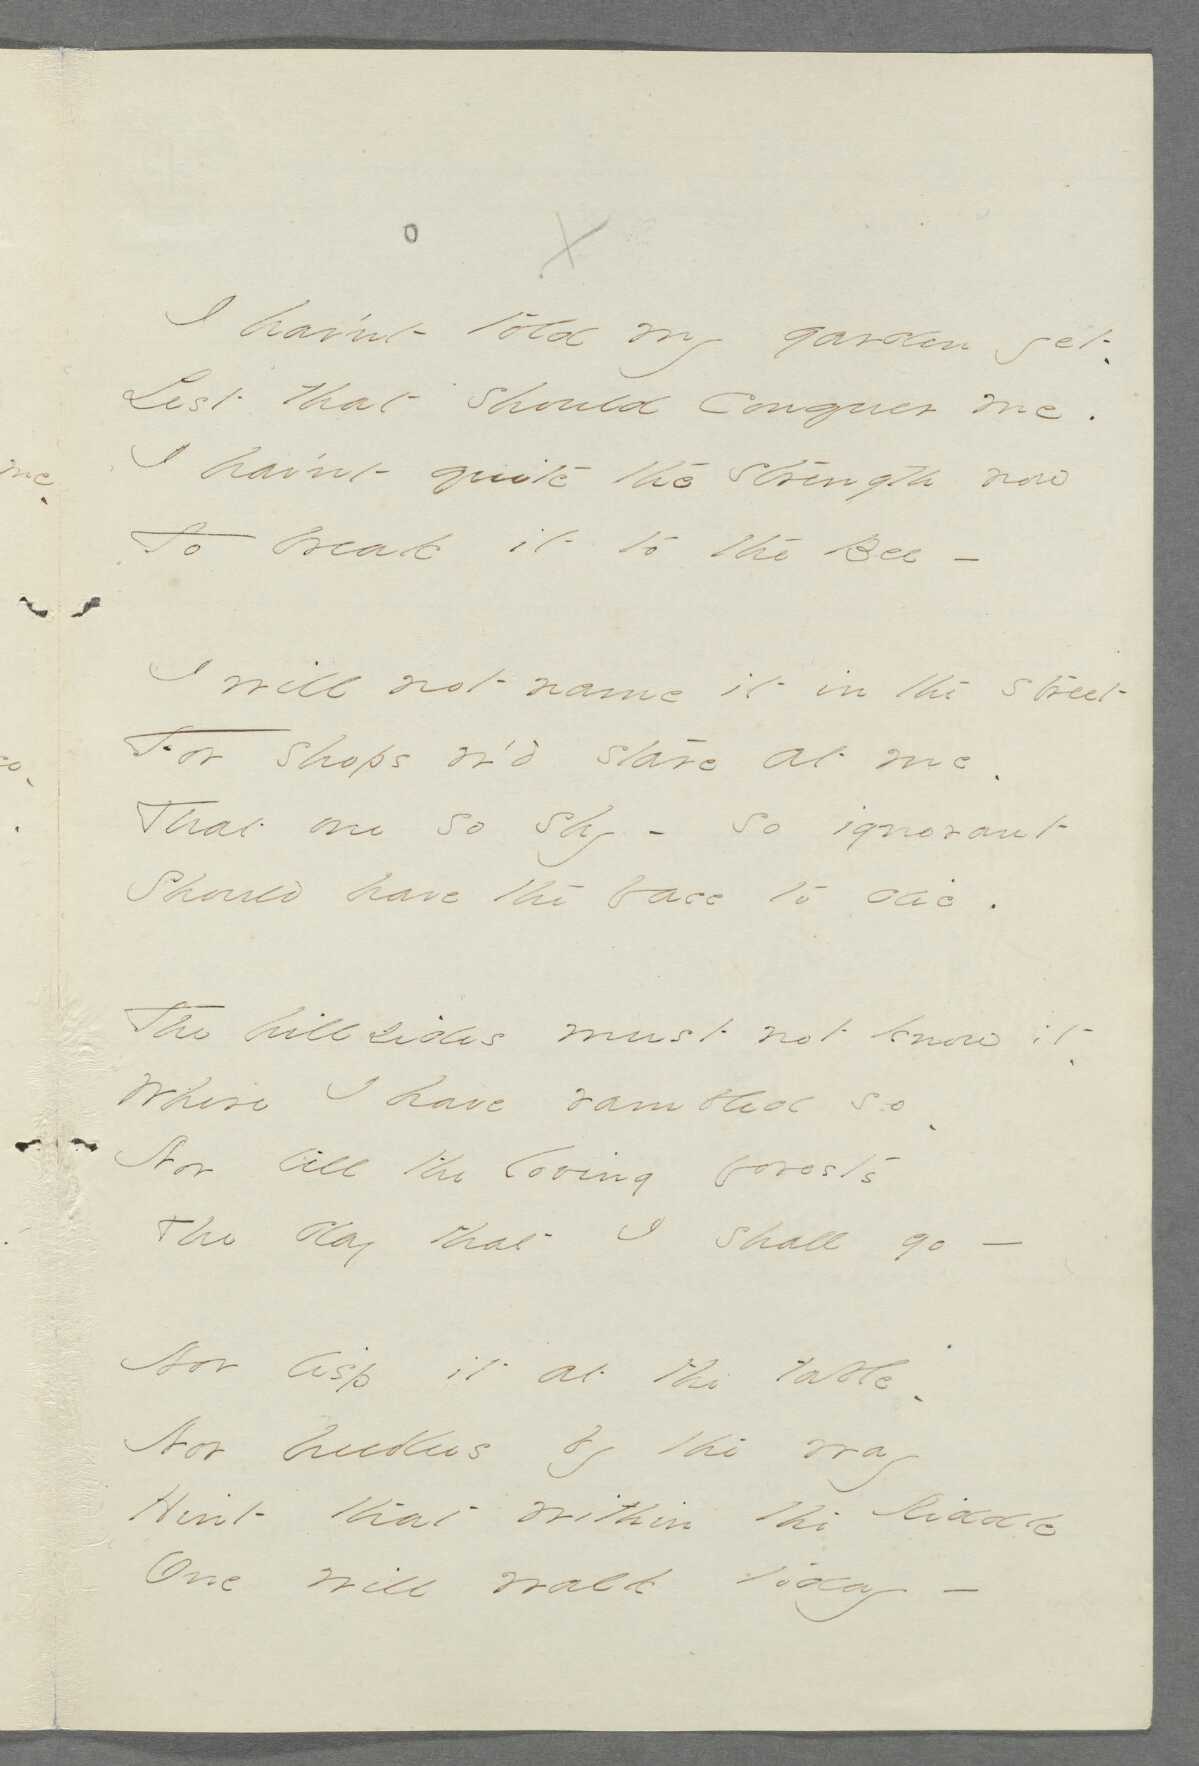 I hav'nt told my garden yet,
Lest that should Conquer me.
I hav'nt quite the strength now
To break it to the Bee –

I will not name it in the street
For shops w'd stare at me,
That one so shy – so ignorant
Should have the face to die.

The hillsides must not know it,
Where I have rambled so,
Nor tell the loving forests
The day that I shall go –

Nor lisp it at the table,
Nor heedless by the way
Hint that within the Riddle
One will walk today –

me,
so,